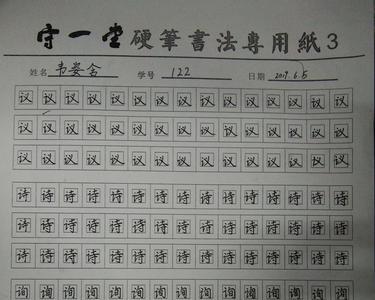 守一堂硬筆書法專用紙3
姓名 韦姿含 学号 122 日期 2019.6.5
议议议议议议议议议议议议议议议
议议议议议议议议议议议议议议议
议议议议议议议议议议议议议议议
诗诗诗诗诗诗诗诗诗诗诗诗诗诗诗
诗诗诗诗诗诗诗诗诗诗诗诗诗诗诗
诗诗诗诗诗诗诗诗诗诗诗诗诗诗诗
询询询询询询询询询询询询询询询